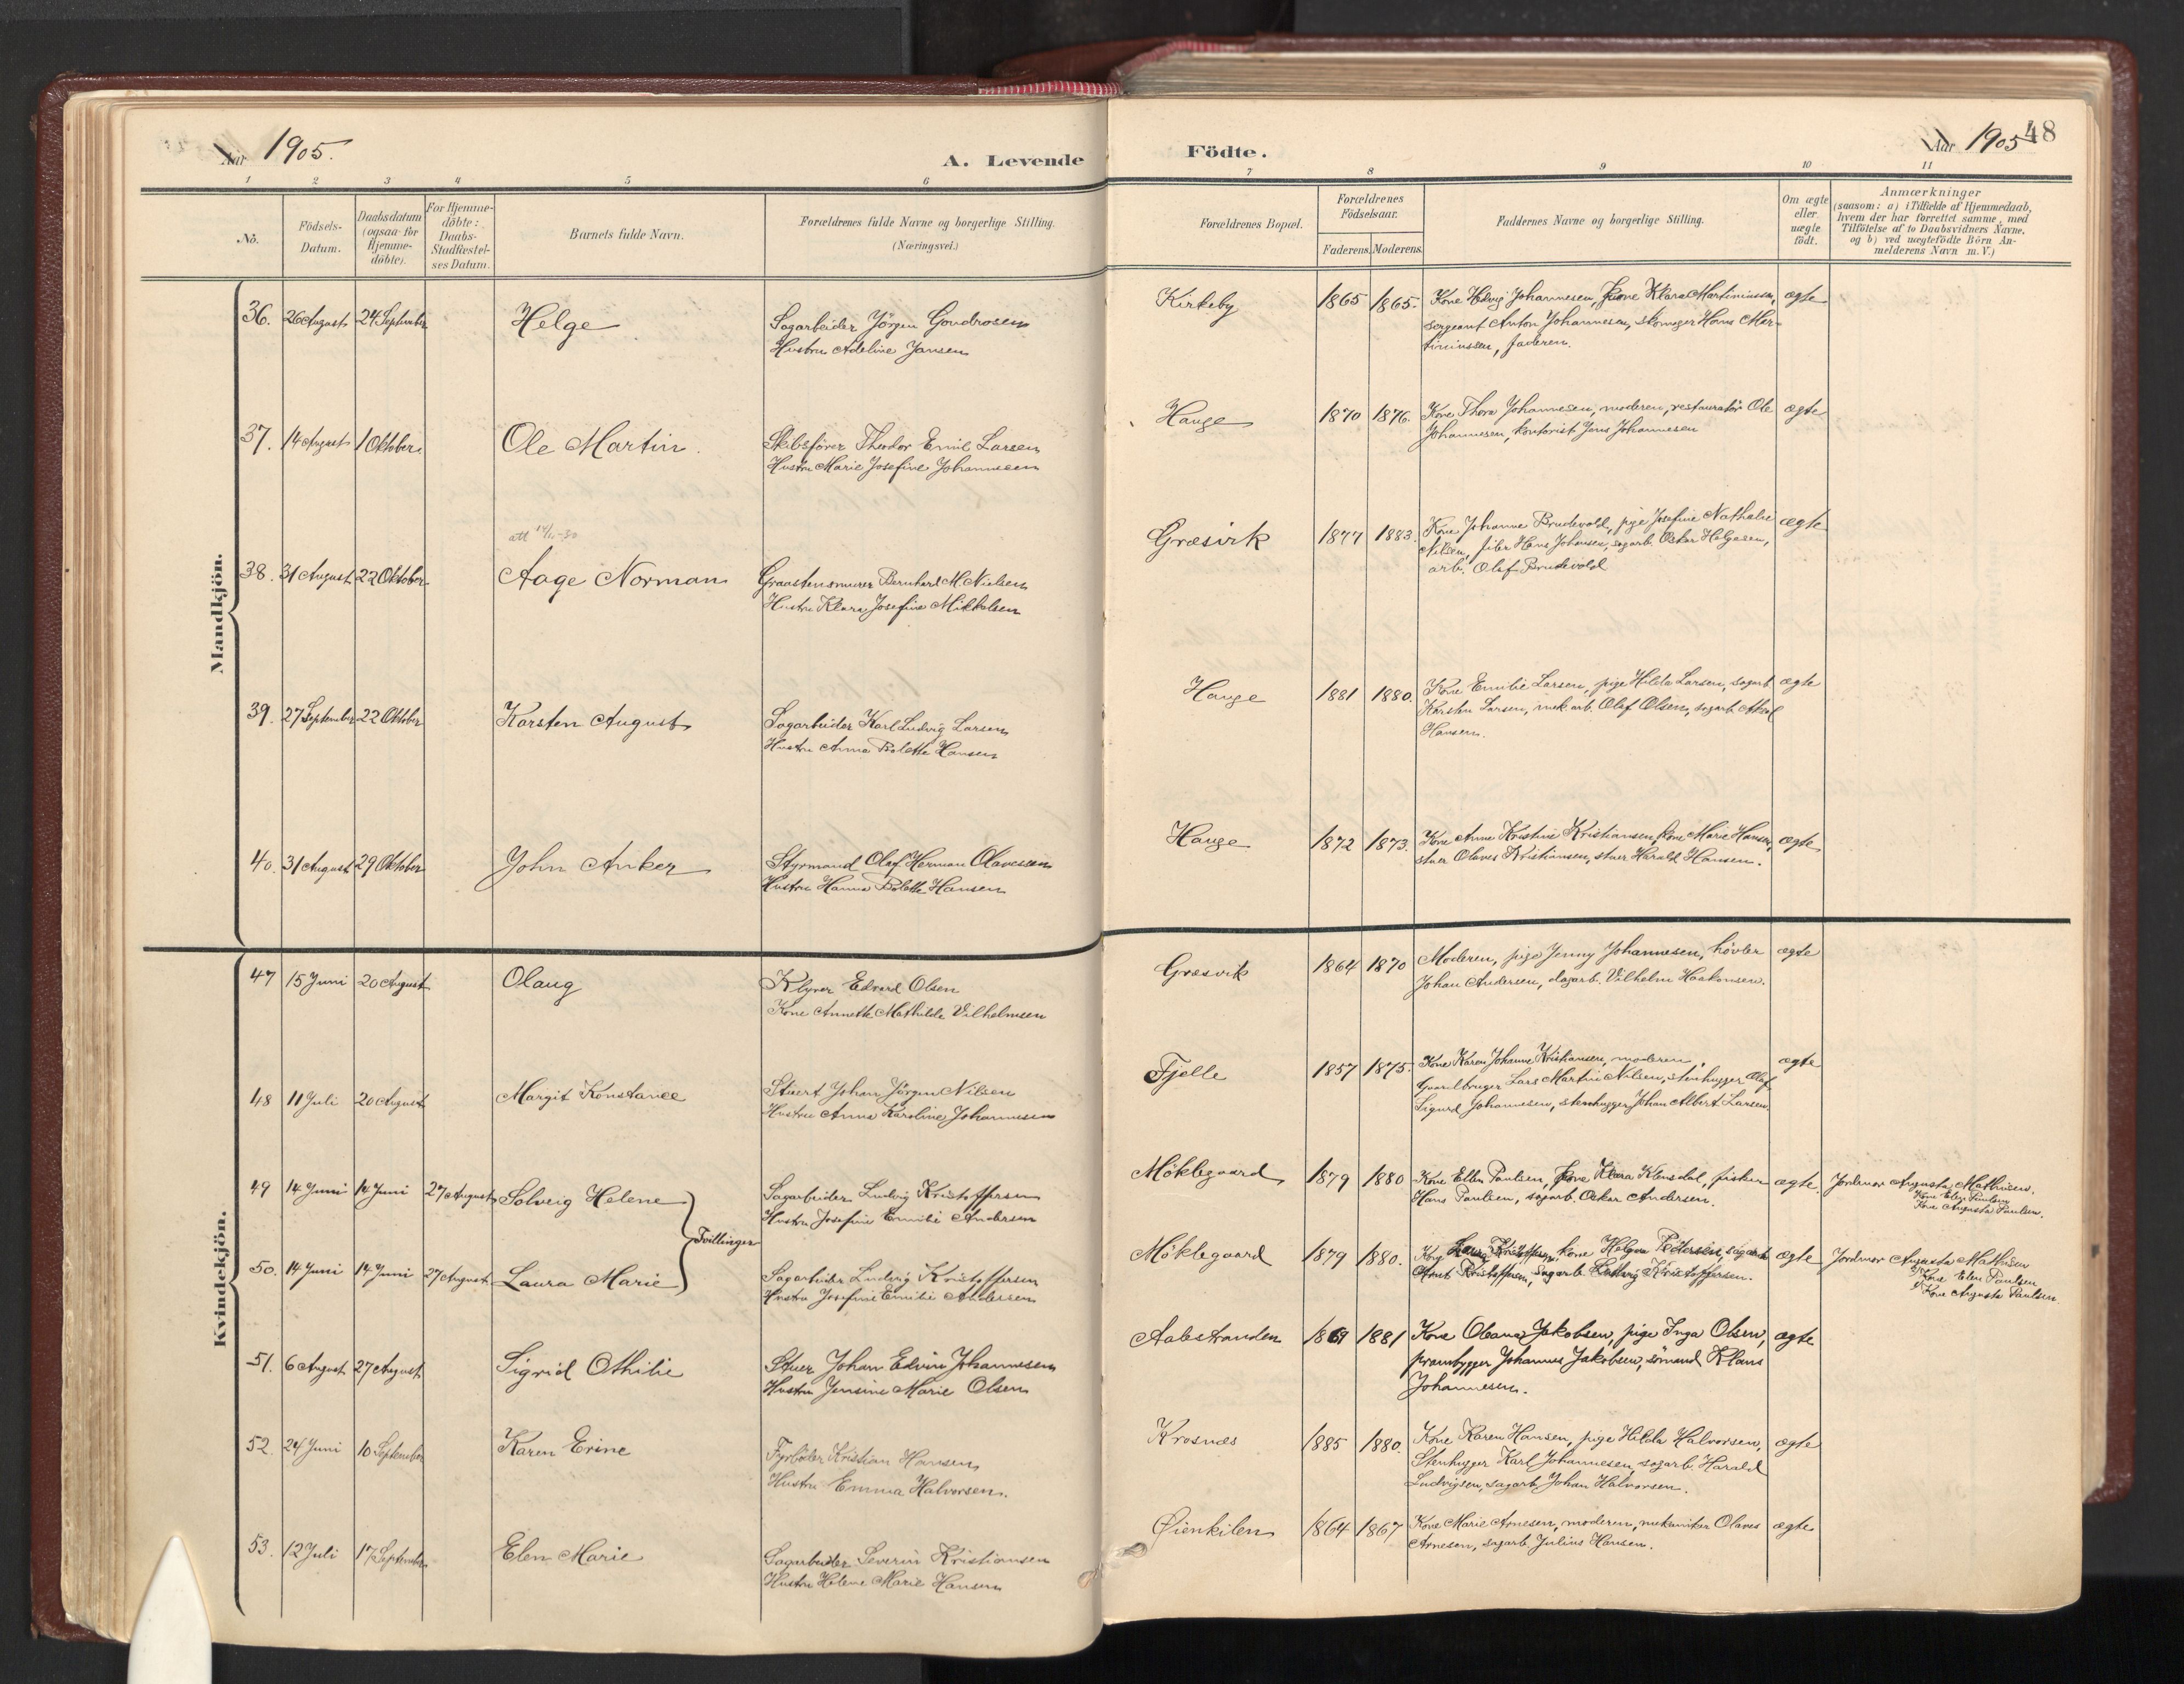 Aar 1905.
A. Levende
1 2 3 4 5 6
No.
Födsels-Datum.
Daabsdatum (ogsaa for Hjemme-döbte).
For Hjemme-döbte: Daabs-Stadfæstel-ses Datum.
Barnets fulde Navn.
Forældrenes fulde Navne og borgerlige Stilling.
(Næringsvei.)
Mandkjön.
36. 26 August 24 September Helge Sagarbeider Jörgen Gundrosen
Hustru Adeline Jansen
37. 14 August 1 Oktober Ole Martin. Skibsförer Theodor Emil Larsen
Hustru Marie Josefine Johannesen
att
38. 31 August 22 Oktober Aage Norman Graastensmurer Bernhard M. Nielsen
Hustru Klara Josefine Mikkelsen
39. 27 September 22 Oktober Karsten August Sagarbeider Karl Ludvig Larsen
Hustru Anna Bolette Hansen
40. 31 August 29 Oktober John Anker Styrmand Olaf Herman Olavesen
Hustru Hanna Bolette Hansen
Kvindekjön.
47 15 Juni 20 August Olaug Klyver Edvard Olsen
Kone Annette Mathilde Vilhelmsen
48 11 Juli 20 August Margit Konstance Stuert Johan Jörgen Nilsen
Hustru Anna Karoline Johannesen
49 14 Juni 14 Juni 27 August Solveig Helene Sagarbeider Ludvig Kristoffersen
Hustru Josefine Emilie Andersen
Tvillinger
50. 14 Juni 14 Juni 27 August Laura Marie Sagarbeider Ludvig Kristoffersen
Hustru Josefine Emilie Andersen
51. 6 August 27 August Sigrid Othilie Stuer Johan Edvin Johannesen
Hustru Jensine Marie Olsen
52. 24 Juni 10 September Karen Erine Fyrböder Kristian Hansen
Hustru Emma Halvorsen.
53. 12 Juli 17 September Elen Marie Sagarbeider Severin Kristiansen
Hustru Helene Marie Hansen
Födte.
Aar 1905
48
7 8 9 10 11
Forældrenes Bopæl.
Forældrenes Födselsaar.
Faderens. Moderens.
Faddernes Navne og borgerlige Stilling.
Om ægte eller uægte födt.
Anmærkninger
(saasom: a) i Tilfælde af Hjemmedaab,
hvem der har forrettet samme, med
Tilföielse af to Daabsvidners Navne,
og b) ved uægtefödte Börn An-
melderens Navn m. V.)
Kirkeby 1865 1865. Kone Hedvig Johannesen, kone Klara Martiniussen, ægte
sergeant Anton Johannesen, skomager Hans Mar-
tiniussen, faderen.
Hauge 1870 1876. Kone Thora Johannesen, moderen, restauratör Ole ægte
Johannesen, kontorist Jens Johannesen
Græsvik 1877 1883. Kone Johanne Brudevold, pige Josefine Nathalie ægte
Nilsen, filer Hans Johansen, sagarb. Oskar Helgesen,
arb. Olaf Brudevold
Hauge 1881 1880. Kone Emilie Larsen, pige Hilda Larsen, sagarb. ægte
Karsten Larsen, mek. arb. Olaf Olsen, sagarb. Aksel
Hansen.
Hauge 1872 1873. Kone Anne Kristine Kristiansen, kone Marie Hansen, ægte
stuer Olaves Kristiansen, stuer Harald Hansen.
Græsvik 1864 1870 Moderen, pige Jenny Johannesen, hövler ægte
Johan Andersen, dagarb. Vilhelm Haakonsen.
Fjelle 1857 1875. Kone Karen Johanne Kristiansen, moderen, ægte
Gaardbruger Lars Martin Nilsen, stenhugger Olaf
Sigurd Johannesen, stenhugger Johan Albert Larsen.
Møklegaard 1879 1880 Kone Ellen Paulsen, kone Klara Klensdal, fisker ægte. Jordmor Augusta Mathisen.
Hans Paulsen, sagarb. Oskar Andersen. Kone Elen Paulsen
Kone Augusta Paulsen.
Møklegaard 1879 1880. Kone Laura Kristoffersen, kone Helga Pettersen, sagarb. ægte Jordmor Augusta Mathisen
Arnt Kristoffersen, sagarb. Ludvig Kristoffersen. Kone Elen Paulsen
Kone Augusta Paulsen.
Aalestranden 1869 1881 Kone Oleana Jakobsen, pige Inga Olsen, ægte
prambygger Johannes Jakobsen, sömand Klaus
Johannesen.
Krosnæs 1885 1880. Kone Karen Hansen, pige Hilda Halvorsen, ægte
Stenhugger Karl Johannesen, sagarb. Harald
Ludvigsen, sagarb. Johan Halvorsen.
Øienkilen 1864 1867 Kone Marie Arnesen, moderen, mekaniker Olaves ægte
Arnesen, sagarb. Julius Hansen.